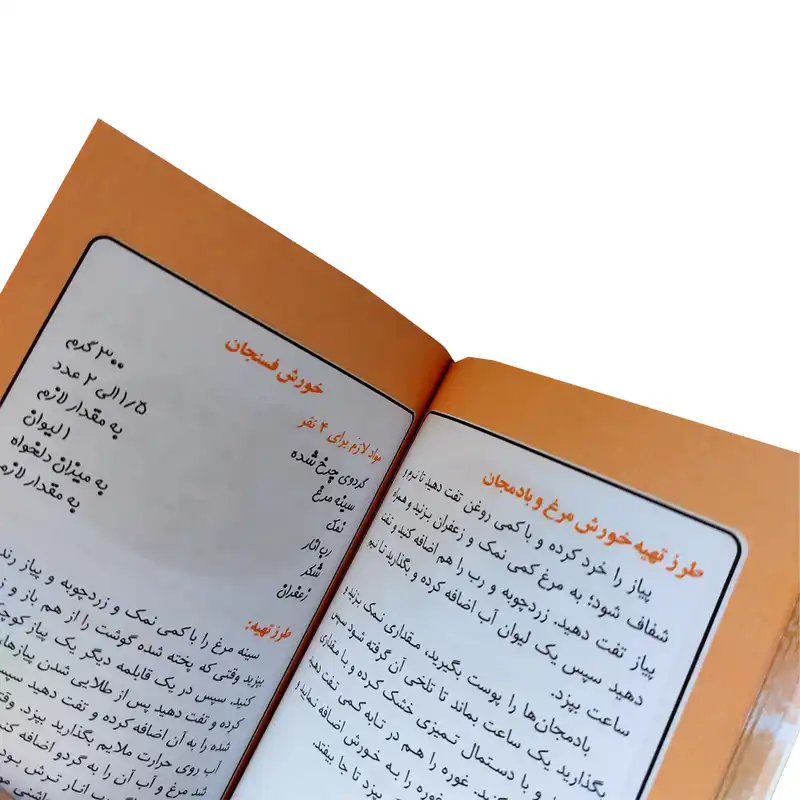 طرز تهیه خورش مرغ و بادمجان
پیاز را خرد کرده و با کمی روغن تفت دهید تا نرم و
شفاف شود؛ به مرغ کمی نمک و زعفران بزنید و همراه
پیاز تفت دهید. زردچوبه و رب را هم اضافه کنید و تفت
دهید سپس یک لیوان آب اضافه کرده و بگذارید تا نیم
ساعت بپزد.
بادمجان‌ها را پوست بگیرید، مقداری نمک بزنید و
بگذارید یک ساعت بماند تا تلخی آن گرفته شود سپس
و با دستمال تمیزی خشک کرده و با مقداری
غوره را هم در تابه کمی تفت دهید
غوره را به خورش اضافه نمایید و
بپزد تا جا بیفتد
خورش فسنجان
مواد لازم برای ۴ نفر
گردوی چرخ شده ۳۰۰ گرم
سینه مرغ ۱/۵ الی ۲ عدد
نمک به مقدار لازم
رب انار ۱ لیوان
شکر به میزان دلخواه
زعفران به مقدار لازم
طرز تهیه:
سینه مرغ را با کمی نمک و زردچوبه و پیاز رنده
بپزید وقتی که پخته شده گوشت را از هم باز و
کنید. سپس در یک قابلمه دیگر یک پیاز کوچک
کرده و تفت دهید پس از طلایی شدن پیازها،
شده را به آن اضافه کرده و تفت دهید سپس
آب روی حرارت ملایم بگذارید بپزد. وقتی
شد مرغ و آب آن را به گردو اضافه کنید
انار ترش بود